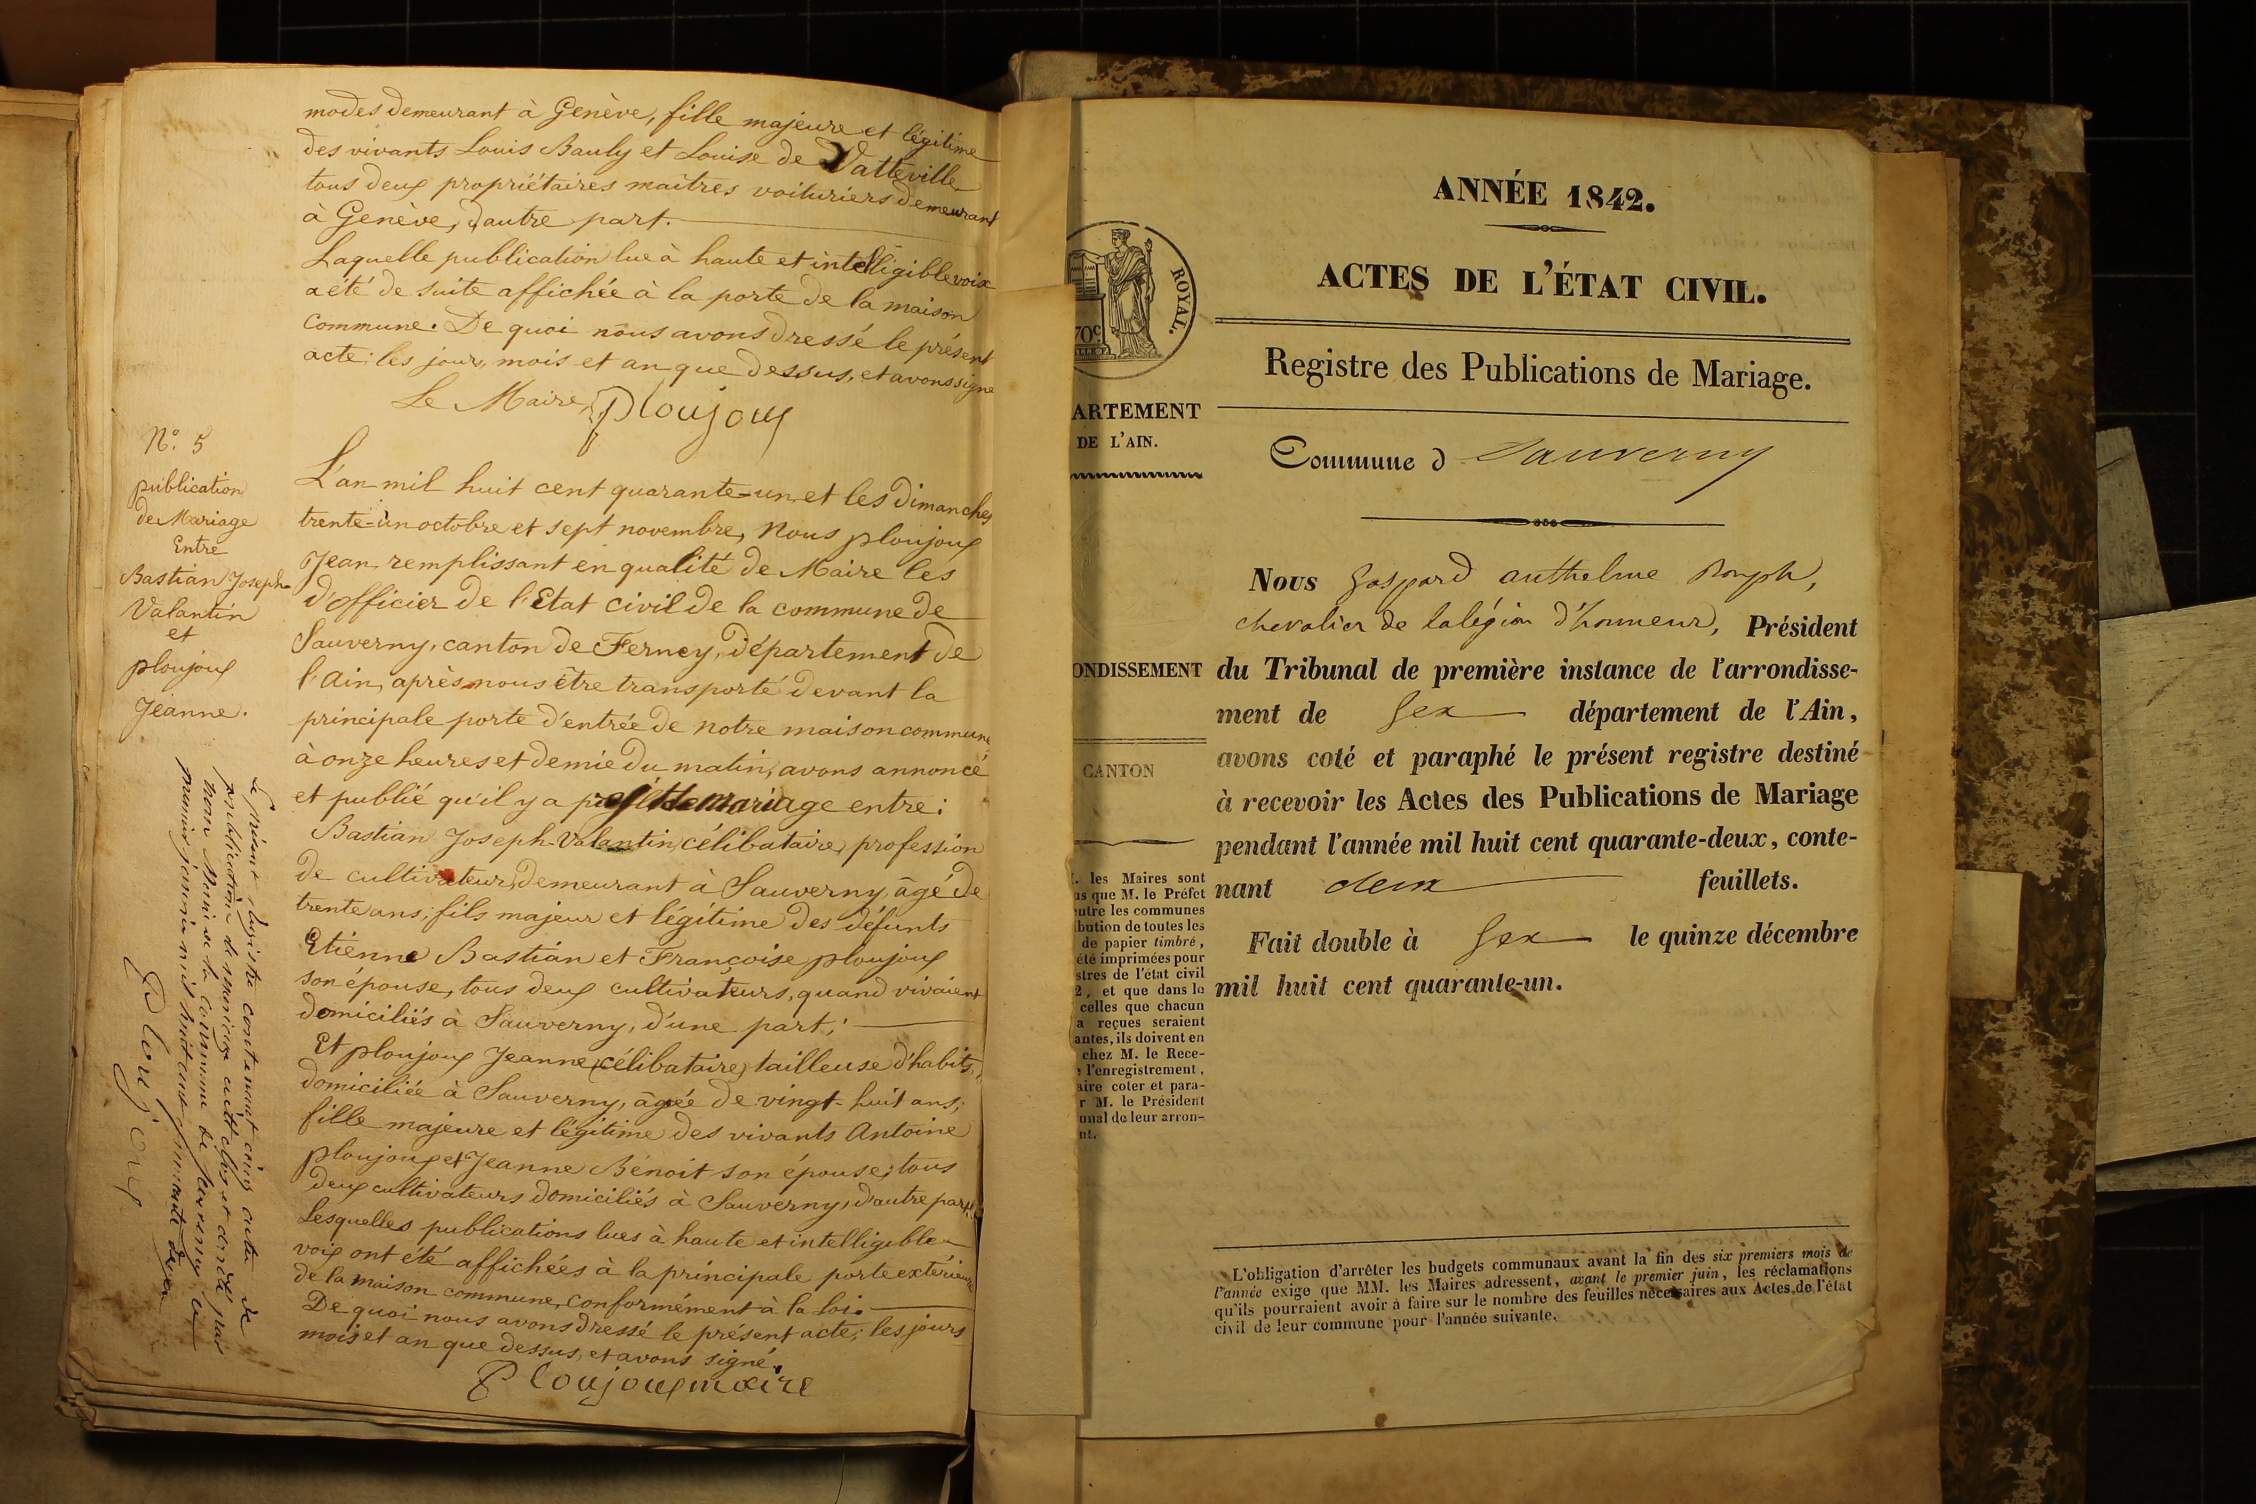 modes demeurant à Genève, fille majeure et légitime
des vivants Louis Bauly et Louise de Vatteville
tous deux propriétaires maîtres voituriers demeurant
à Genève, d'autre part.
Laquelle publication lue à haute et intelligible voix
a été de suite affichée à la porte de la maison
Commune. De quoi nous avons dressé le présent
acte: les jour, mois et an que dessus, et avons signé
Le Maire, Ploujoux
N.° 5
publication
de Mariage
Entre
Bastian Joseph
Valantin
et
ploujoux
Jeanne.
L'an mil huit cent quarante-un, et les dimanches
trente-un octobre et sept novembre, Nous ploujoux
Jean remplissant en qualité de Maire les
d'officier de l'Etat civil de la commune de
Sauverny, canton de Ferney, département de
l'Ain, après nous être transporté devant la
principale porte d'entrée de notre maison commune
à onze heures et demie du matin, avons annoncé
et publié qu'il y a mariage entre:
Bastian Joseph-Valantin, célibataire, profession
de cultivateur, demeurant à Sauverny, âgé de
trente ans, fils majeur et légitime des défunts
Etienne Bastian et Françoise ploujoux
son épouse, tous deux cultivateurs, quand vivaient
domiciliés à Sauverny, d'une part;
Et ploujoux Jeanne, célibataire, tailleuse d'habits,
domiciliée à Sauverny, âgée de vingt-huit ans;
fille majeure et légitime des vivants Antoine
ploujoux et Jeanne Bénoit son épouse; tous
deux cultivateurs domiciliés à Sauverny, d'autre part.
Lesquelles publications lues à haute et intelligible
voix ont été affichées à la principale porte extérieure
de la maison commune, conformément à la loi.
De quoi nous avons dressé le présent acte; les jours
mois et an que dessus, et avons signé.
Ploujoux maire
Le présent Registre contenant cinq actes de
publication de mariage a été clos et arrêté par
nous Maire de la Commune de Sauverny ce
premier janvier mil huit cent quarante deux
Ploujoux
ANNÉE 1842.
ACTES DE L'ÉTAT CIVIL.
ROYAL.
70c
Registre des Publications de Mariage.
ARTEMENT
DE L'AIN.
Commune d Sauverny
ONDISSEMENT
CANTON
Nous Gaspard anthelme
chevalier de la légion d'honneur, Président
du Tribunal de première instance de l'arrondisse-
ment de Gex département de l'Ain,
avons coté et paraphé le présent registre destiné
à recevoir les Actes des Publications de Mariage
pendant l'année mil huit cent quarante-deux, conte-
nant deux feuillets.
Fait double à Gex le quinze décembre
mil huit cent quarante-un.
. les Maires sont
as que M. le Préfet
utre les communes
bution de toutes les
de papier timbré,
été imprimées pour
stres de l'état civil
2, et que dans le
celles que chacun
a reçues seraient
antes, ils doivent en
chez M. le Rece-
e l'enregistrement,
aire coter et para-
r M. le Président
unal de leur arron-
nt.
L'obligation d'arrêter les budgets communaux avant la fin des six premiers mois de
l'année exige que MM. les Maires adressent, avant le premier juin, les réclamations
qu'ils pourraient avoir à faire sur le nombre des feuilles nécessaires aux Actes de l'état
civil de leur commune pour l'année suivante.